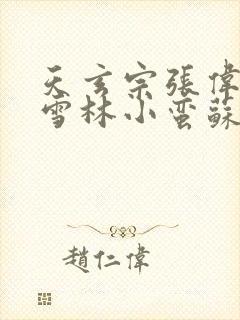 天玄宗張偉
雪林小蛮蘇
趙仁偉